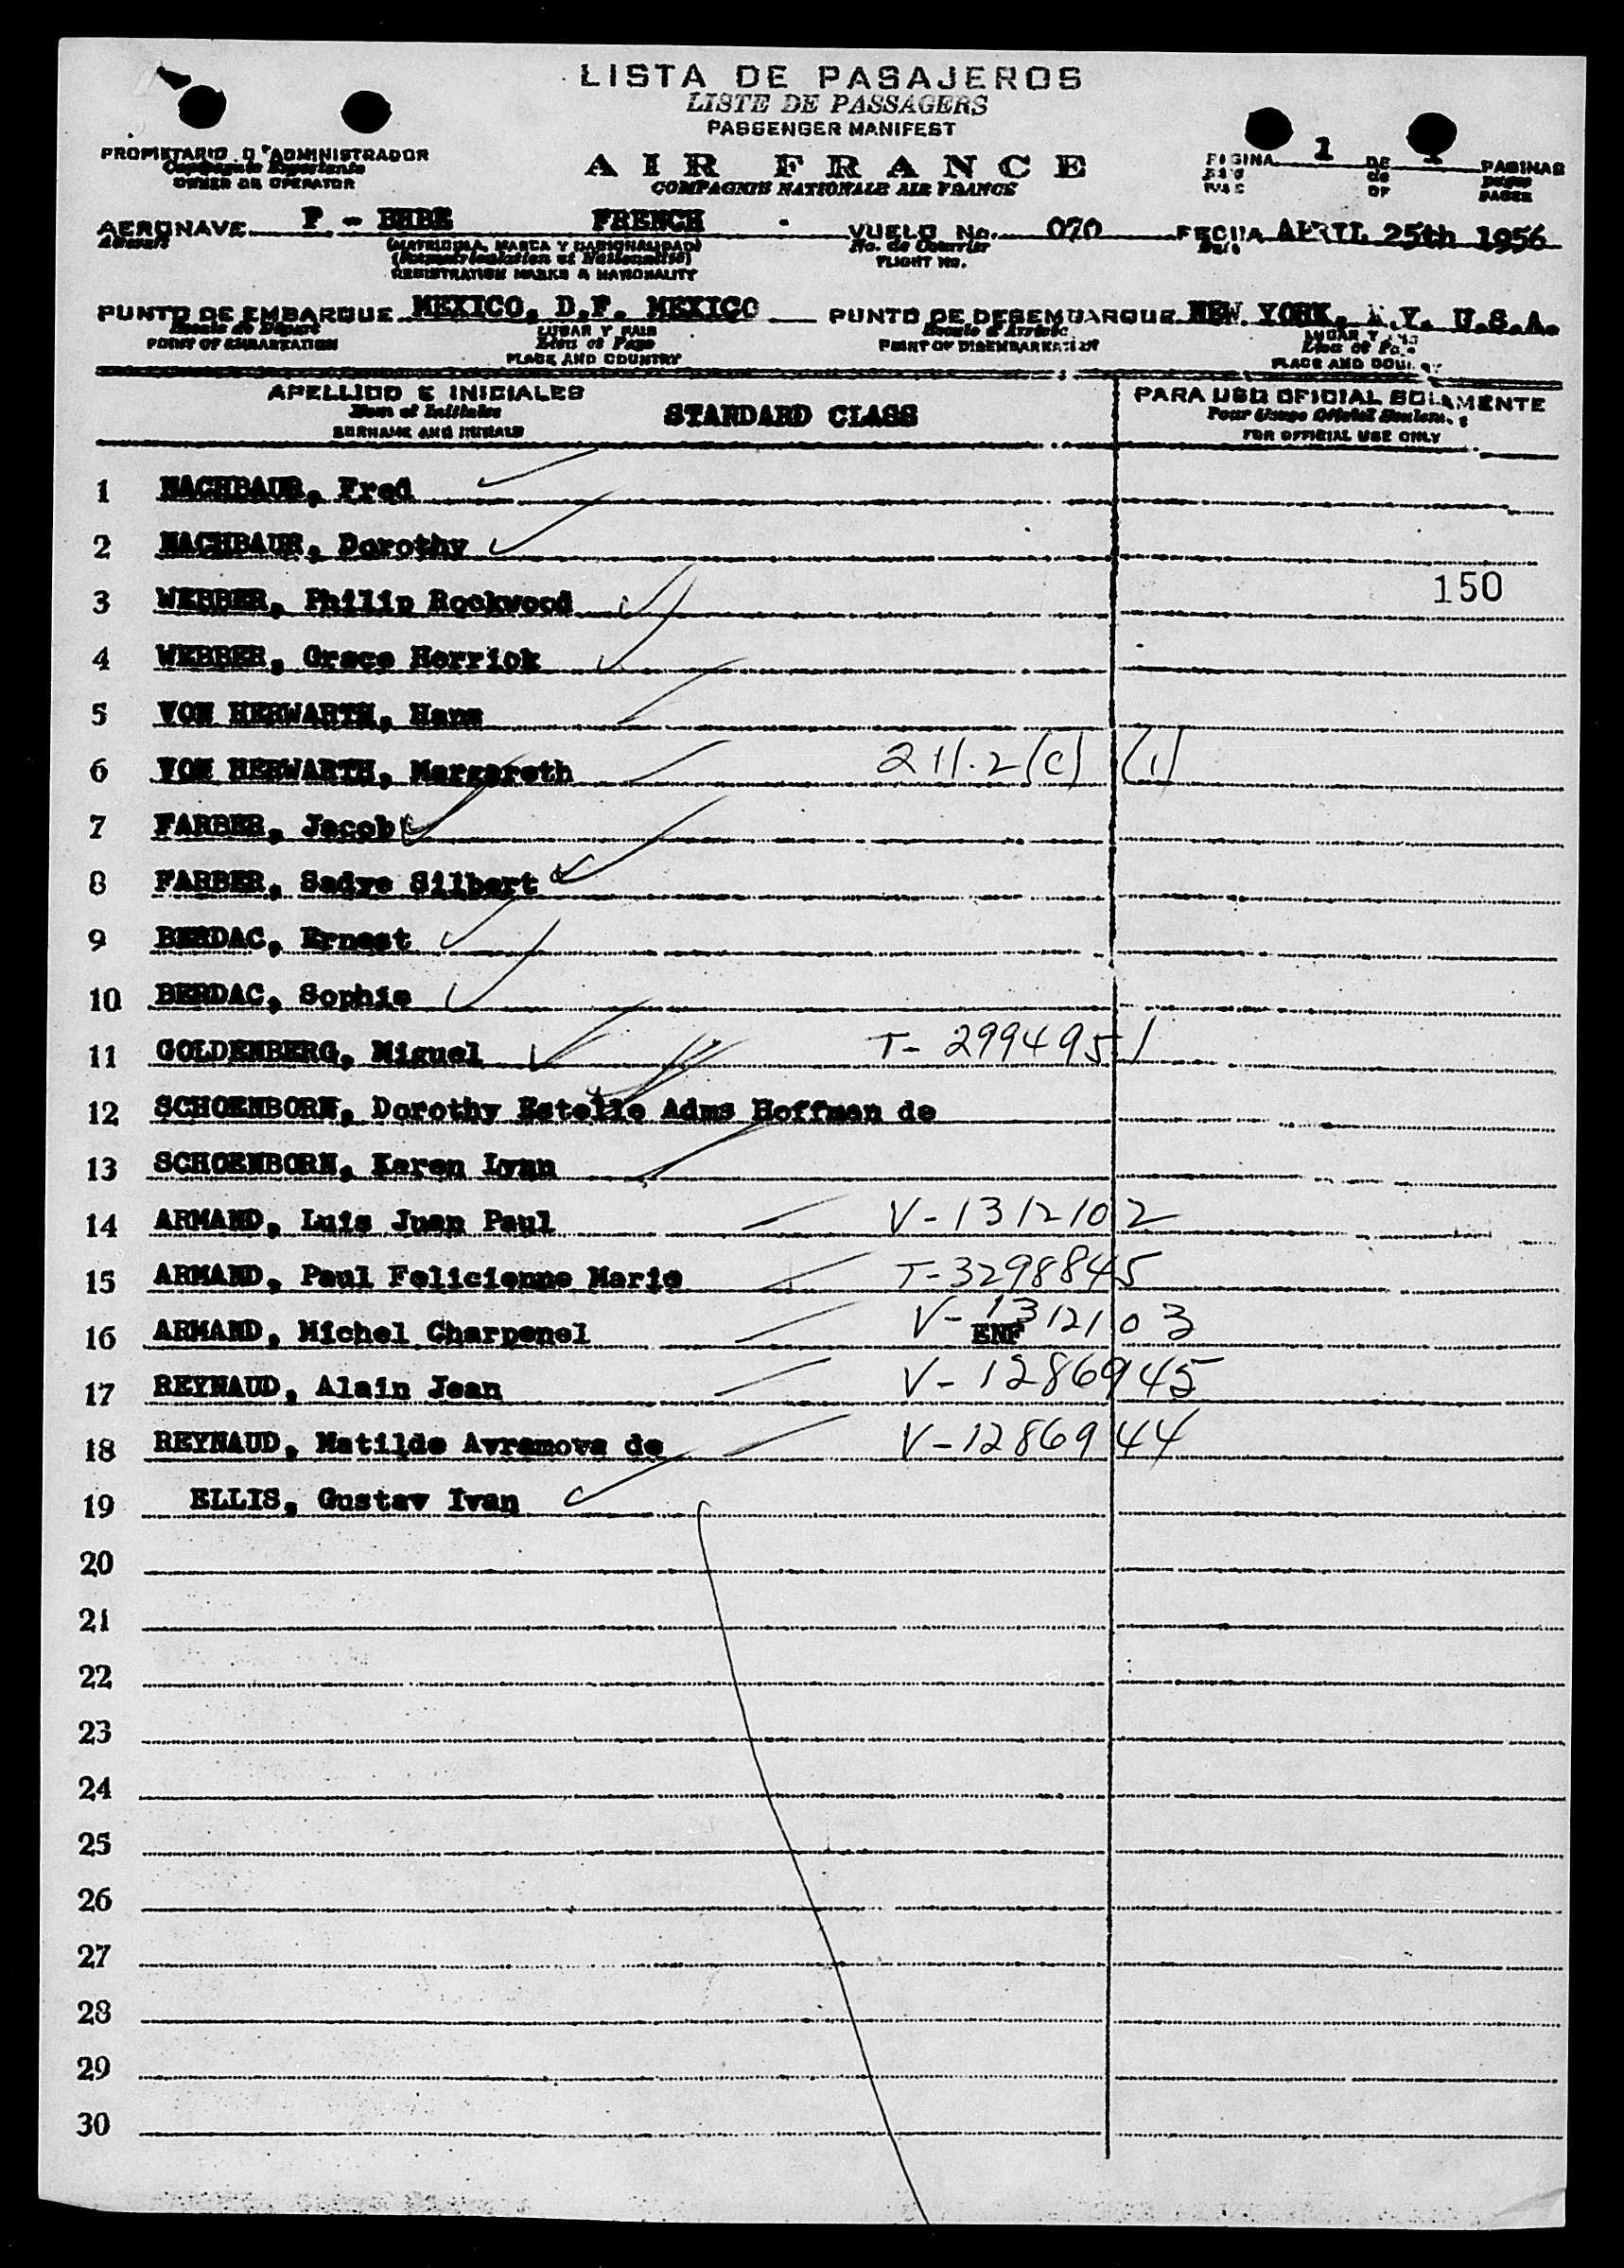 LISTA DE PASAJEROS
LISTE DE PASSAGERS
PASSENGER MANIFEST
PROPIETARIO O ADMINISTRADOR
OWNER OR OPERATOR
AIR FRANCE
COMPAGNIE NATIONALE AIR FRANCE
PAGINA 1 DE 1 PAGINAS
de pages
OF PAGES
AERONAVE F - BHBE FRENCH VUELO No. 070 FECHA APRIL 25th 1956
(MATRICULA, MARCA Y NACIONALIDAD) No. de Courrier
(Immatriculation et Nationalité) FLIGHT No.
REGISTRATION MARKS & NATIONALITY
PUNTO DE EMBARQUE MEXICO, D.F. MEXICO PUNTO DE DESEMBARQUE NEW YORK, N.Y. U.S.A.
LUGAR Y PAIS
POINT OF EMBARKATION Lieu et Pays POINT OF DISEMBARKATION
PLACE AND COUNTRY
APELLIDO E INICIALES STANDARD CLASS PARA USO OFICIAL SOLAMENTE
Nom et Initiales Pour Usage Officiel
SURNAME AND INITIALS FOR OFFICIAL USE ONLY
1 NACHBAUR, Fred
2 NACHBAUR, Dorothy
3 WEBBER, Philip Rockwood 150
4 WEBBER, Grace Herrick
5 VON HERWARTH, Hans
6 VON HERWARTH, Margareth 211.2(C) (1)
7 FARBER, Jacob
8 FARBER, Sadye Silbert
9 BERDAC, Ernest
10 BERDAC, Sophie
11 GOLDENBERG, Miguel T- 2994951
12 SCHOENBORN, Dorothy Estelle Adms Hoffman de
13 SCHOENBORN, Karen Lynn
14 ARMAND, Luis Juan Paul V-1312102
15 ARMAND, Paul Felicienne Marie T-3298845
16 ARMAND, Michel Charpenel ENF V-1312103
17 REYNAUD, Alain Jean V-1286945
18 REYNAUD, Matilde Avramova de V-1286944
19 ELLIS, Gustav Ivan
20
21
22
23
24
25
26
27
28
29
30